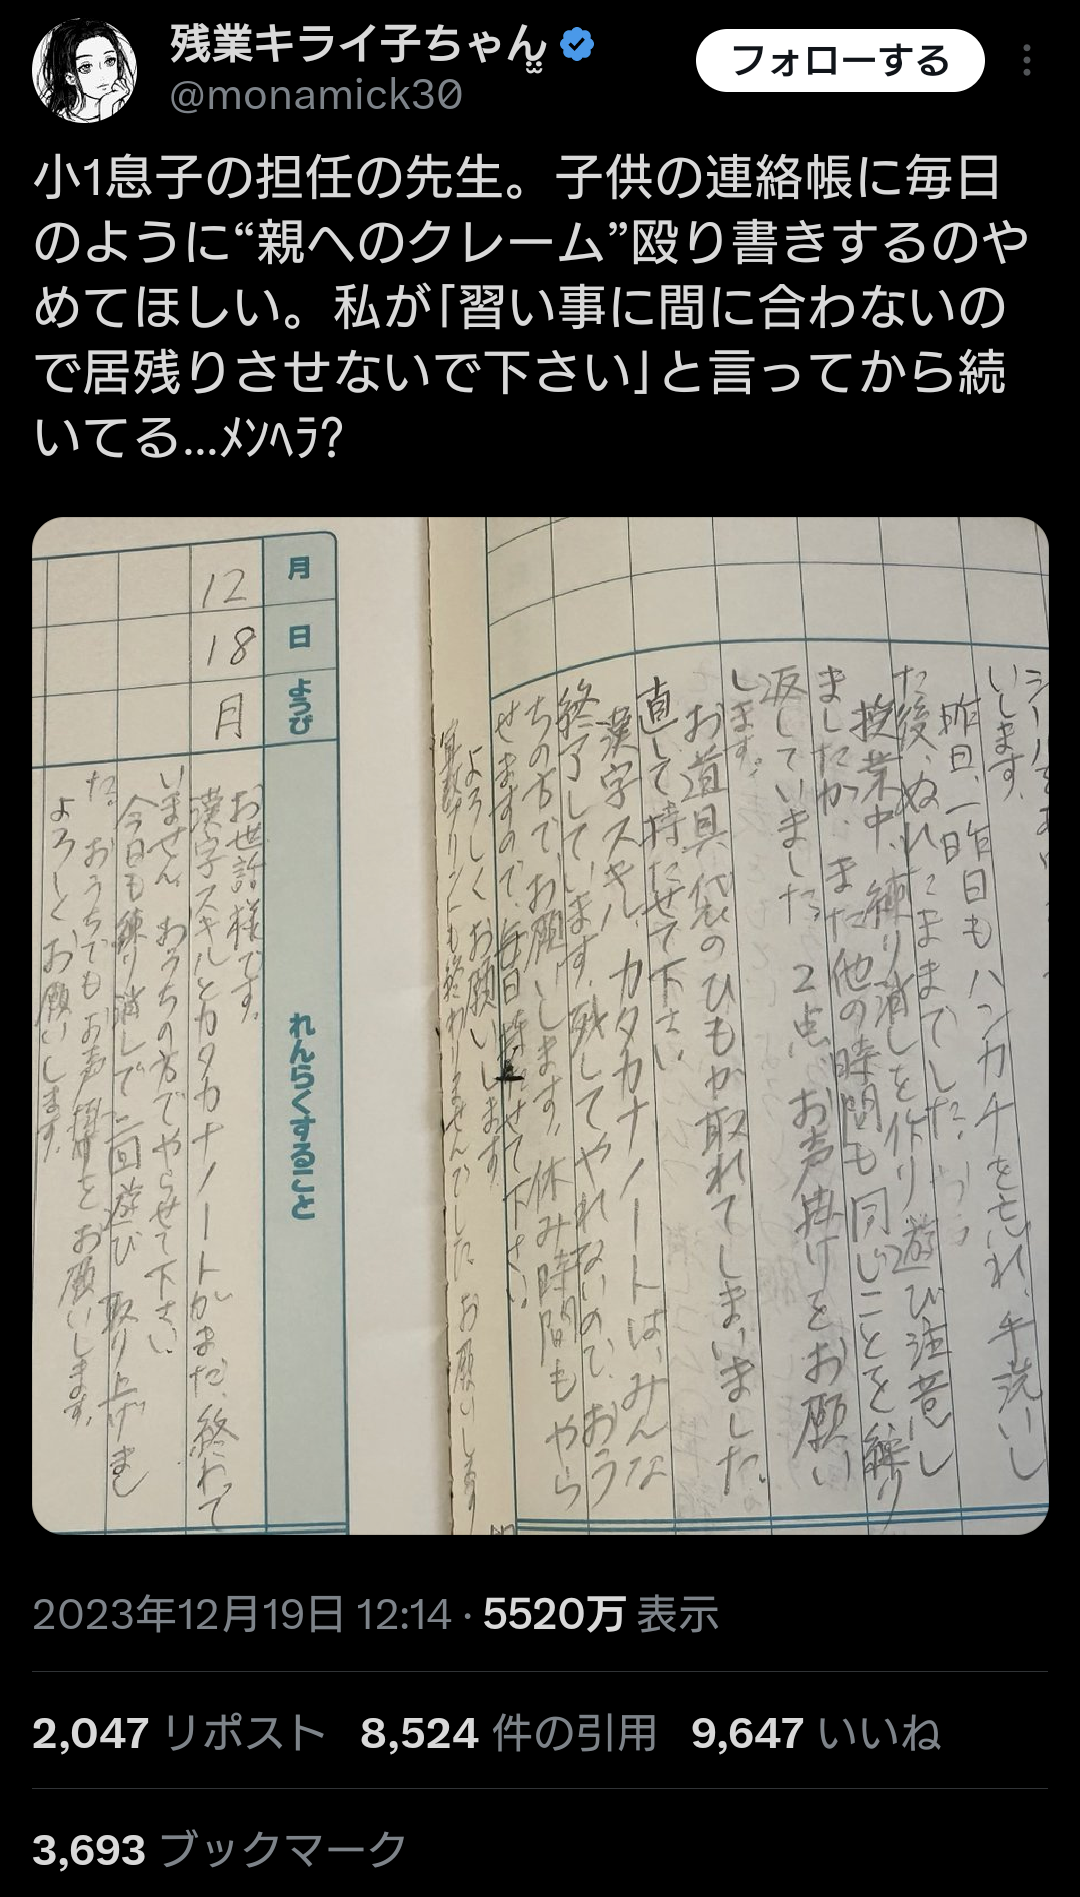 残業キライ子ちゃん
@monamick30
フォローする
小1息子の担任の先生。子供の連絡帳に毎日
のように“親へのクレーム”殴り書きするのや
めてほしい。私が「習い事に間に合わないの
で居残りさせないで下さい」と言ってから続
いてる...ﾒﾝﾍﾗ?
いします。
昨日、一昨日もハンカチを忘れ、手洗いし
た後、ぬれたままでした。
授業中、練り消しを作り遊び注意し
ましたが、また他の時間も同じことを繰り
返していました。2点、お声掛けをお願い
します。
お道具袋のひもが取れてしまいました。
直して持たせて下さい
漢字スキル、カタカナノートは、みんな
終了しています。残してやれないので、おう
ちの方で、お願いします。休み時間もやら
せますので、毎日持たせて下さい。
よろしくお願いします。
算数プリントも終わりませんでした。お願いします
月
日
ようび
れんらくすること
12
18
月
お世話様です。
漢字スキルとカタカナノートがまだ、終わって
いません。おうちの方でやらせて下さい
今日も練り消しで二回遊び取り上げまし
た。おうちでもお声掛けをお願いします。
よろしくお願いします。
2023年12月19日 12:14 · 5520万 表示
2,047 リポスト 8,524 件の引用 9,647 いいね
3,693 ブックマーク